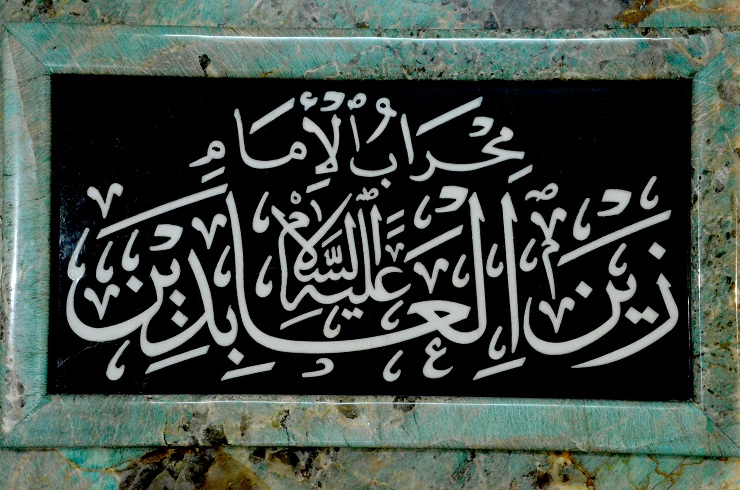 مِحْرَابُ الْإِمَامِ
زَيْنِ الْعَابِدِيْنَ عَلَيْهِ السَّلَامُ